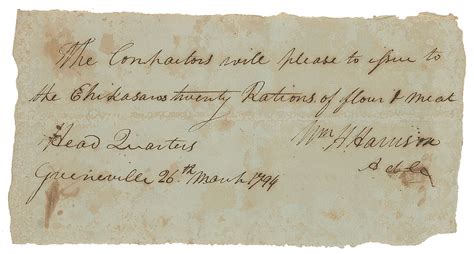 The Contractors will please to issue to
the Chikasaws twenty Rations of flour & meat
Head Quarters Wm H. Harrison
Greeneville 26th March 1794